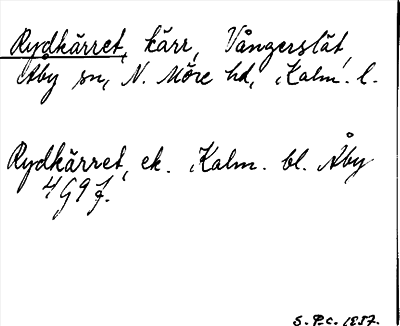 Rydkärret, kärr, Vångerslät,
Åby sn, N. Möre hd, Kalm. l.
Rydkärret, ek. Kalm. bl. Åby
4G9f.
S.P.C. 1957.